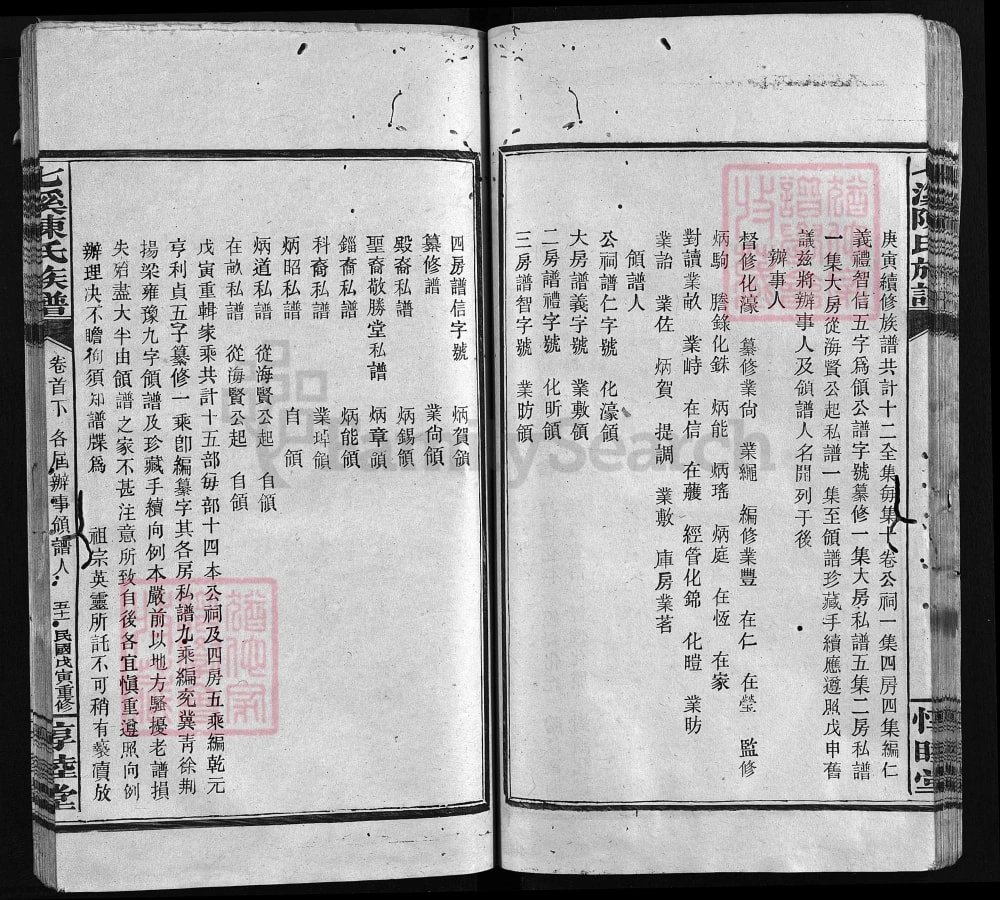 庚寅續修族譜共計十二全集每集十卷公祠一集四房四集編仁
義禮智信五字爲領公譜字號纂修一集大房私譜五集二房私譜
一集大房從海賢公起私譜一集至領譜珍藏手續應遵照戊申舊
議茲將辦事人及領譜人名開列于後
辦事人
督修化濠 纂修業尙 業繩 編修業豐 在仁 在瑩 監修
炳駒 謄錄化銖 炳能 炳瑤 炳庭 在恆 在家
對讀業畝 業峙 在信 在䕶 經管化錦 化暟 業昉
業詒 業佐 炳賀 提調 業敷 庫房業茗
領譜人
公祠譜仁字號 化濠領
大房譜義字號 業敷領
二房譜禮字號 化昕領
三房譜智字號 業昉領
四房譜信字號 炳賀領
纂修譜 業尙領
殿裔私譜 炳錫領
聖裔敬勝堂私譜 炳章領
錙裔私譜 炳能領
科裔私譜 業瑋領
炳昭私譜 自領
炳道私譜 從海賢公起 自領
在畝私譜 從海賢公起 自領
戊寅重輯家乘共計十五部每部十四本公祠及四房五乘編乾元
亨利貞五字纂修一乘卽編纂字其各房私譜九乘編兖冀靑徐荆
揚梁雍豫九字領譜及珍藏手續向例本嚴前以地方騷擾老譜損
失殆盡大半由領譜之家不甚注意所致自後各宜愼重遵照向例
辦理决不瞻徇須知譜牒爲 祖宗英靈所託不可稍有褻瀆放
七溪陳氏族譜 卷首下 各屆辦事領譜人 五十一 民國戊寅重修 惇睦堂